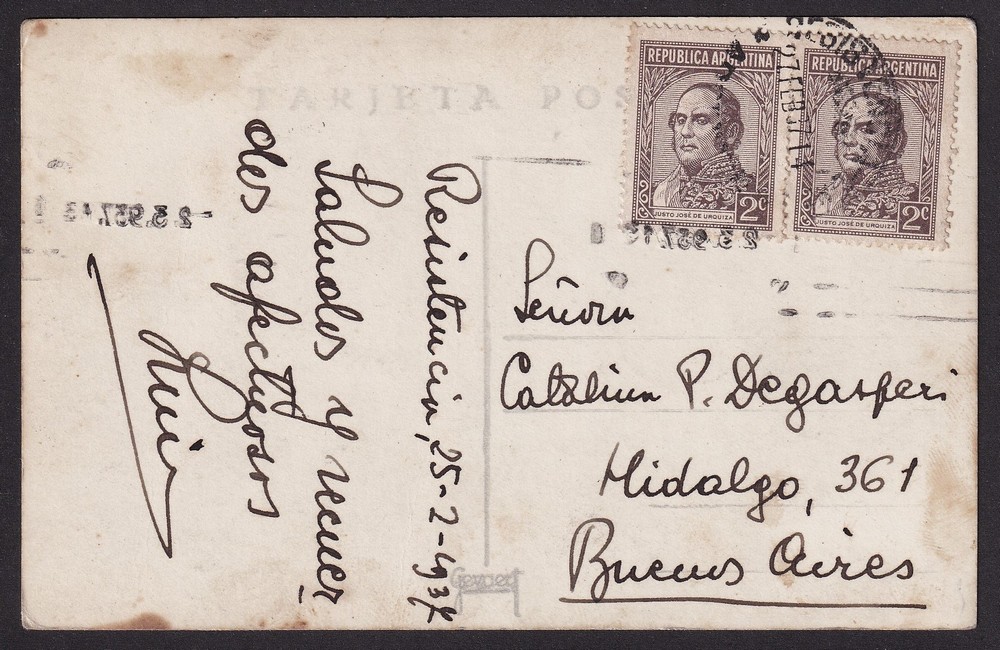 TARJETA POS
REPUBLICA ARGENTINA
JUSTO JOSÉ DE URQUIZA
2c
REPUBLICA ARGENTINA
JUSTO JOSÉ DE URQUIZA
2c
Resistencia, 25-2-1937
Saludos y recuer
dos afectuosos
Señora
Catalina P. Degasperi
Hidalgo, 361
Buenos Aires
Gevaert